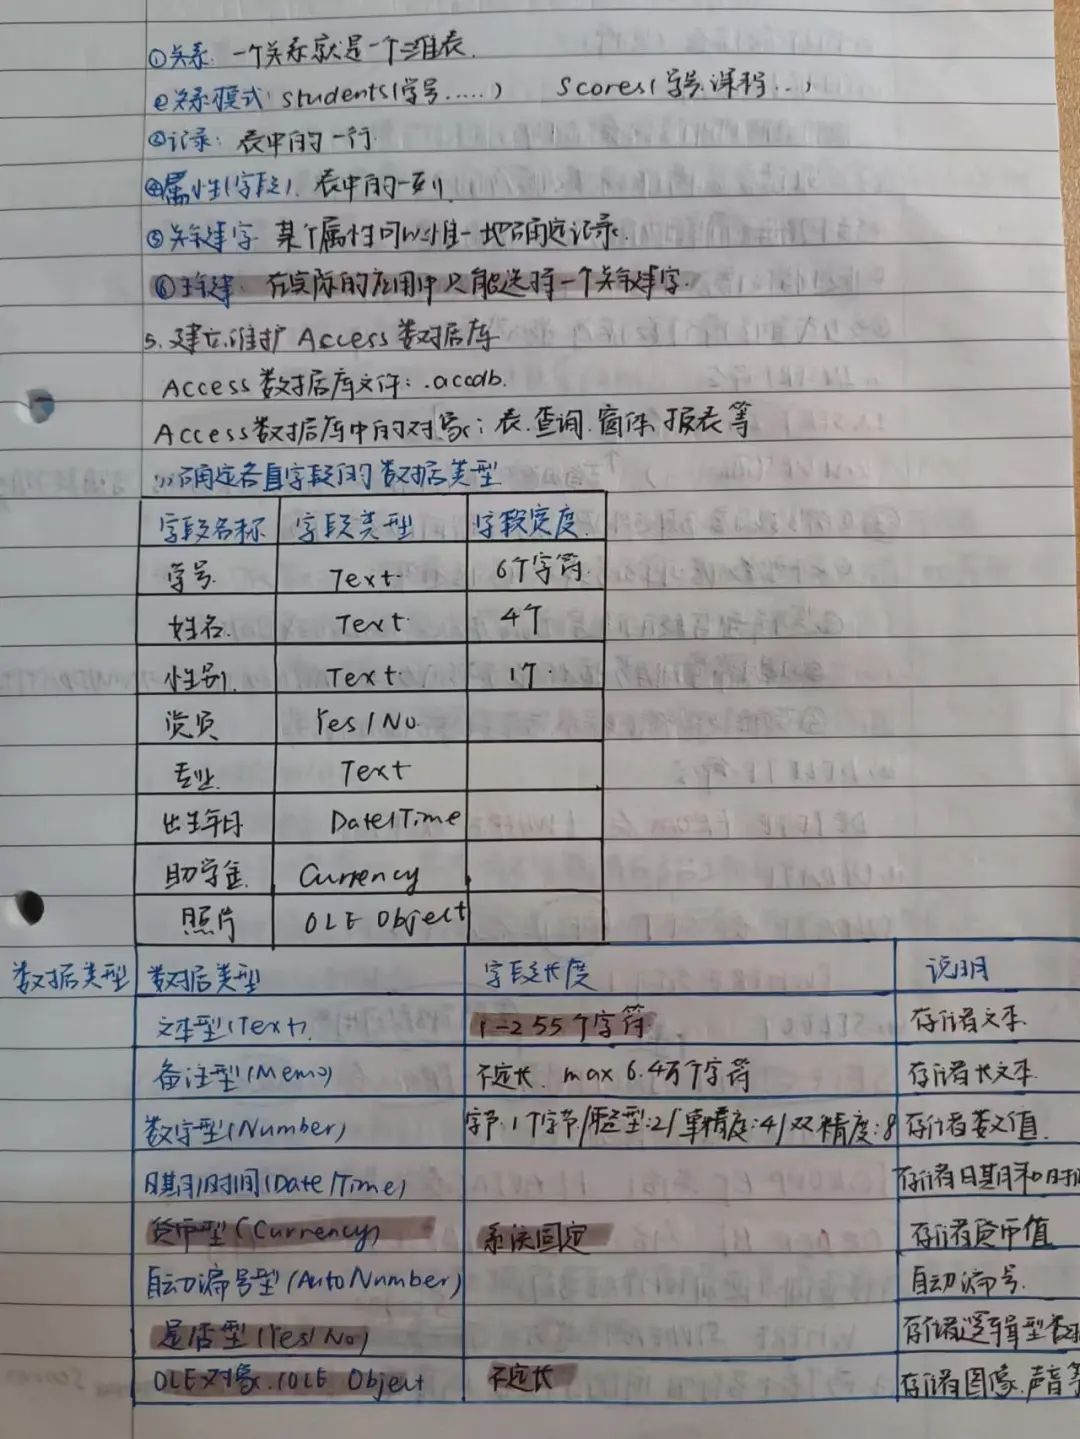 ①关系: 一个关系就是一个二维表.
②关系模式: students(学号.....) Scores(学号.课程...)
③记录: 表中的一行
④属性(字段). 表中的一列
⑤关键字 某个属性可以唯一地确定记录.
⑥主键: 在实际的应用中只能选择一个关键字.
5. 建立.维护 Access 数据库
Access 数据库文件: .accdb.
Access数据库中的对象: 表.查询.窗体.报表等
确定各字段的数据类型
字段名称 字段类型 字段宽度
学号. Text. 6个字符.
姓名. Text. 4个
性别. Text. 1个.
党员 Yes/No.
专业. Text
出生年月 Date/Time
助学金 Currency
照片 OLE Object
数据类型 数据类型 字段长度 说明
文本型(Text) 1-255个字符. 存储文本.
备注型(Memo) 不定长. max 6.4万个字符 存储长文本.
数字型(Number) 字节:1个字节/整型:2/单精度:4/双精度:8 存储数值.
日期/时间(Date/Time) 存储日期和时
货币型(Currency) 系统固定 存储货币值
自动编号型(AutoNumber) 自动编号.
是否型(Yes/No) 存储逻辑型数
OLE对象.(OLE Object 不定长 存储图像.声音等